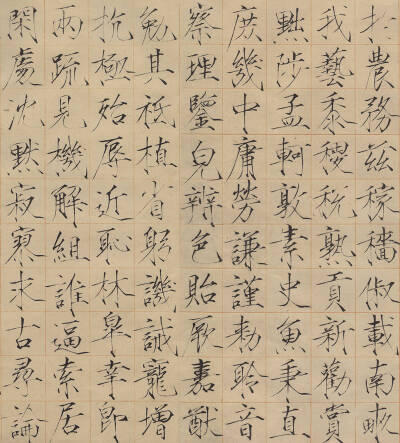 扵農務茲稼穡俶載南畝
我藝黍稷稅熟貢新勸賞
黜陟孟軻敦素史魚秉直
庶幾中庸勞謙謹勅聆音
察理鑒皃辨色貽厥嘉猷
勉其祗植省躬譏誡寵增
抗極殆辱近恥林皋幸即
兩疏見機解組誰逼索居
閑處沈默寂寥求古尋論